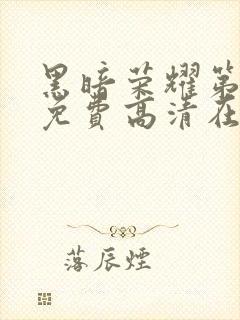 黑暗荣耀第
免費高清在
落辰煙